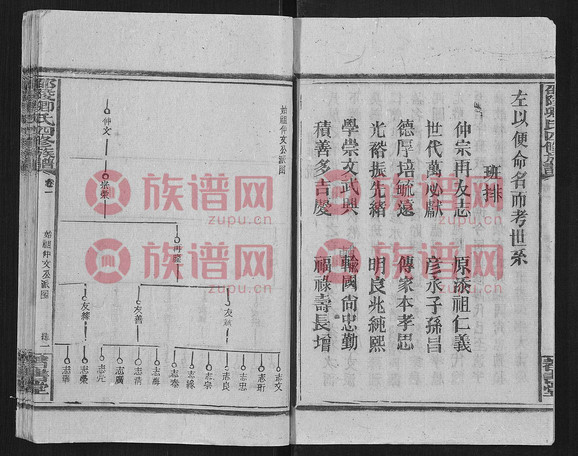 左以便命名而考世系
班排
仲宗冉友志 原添祖仁義
世代萬必獻 彥永子孫昌
德厚培毓遠 傳家本孝思
光裕振先緒 明良兆純熙
學崇文武興 輪國尚忠勤
積善多吉慶 福祿壽長增
始祖仲文公派圖
仲文
友善
志文
志珩
志忠
志良
志宗
志緣
志泰
志海
志清
志廣
志元
卷一
始祖仲文公派圖
族谱网
zupu.cn
族谱网
zupu.cn
族谱网
zupu.cn
族谱网
zupu.cn